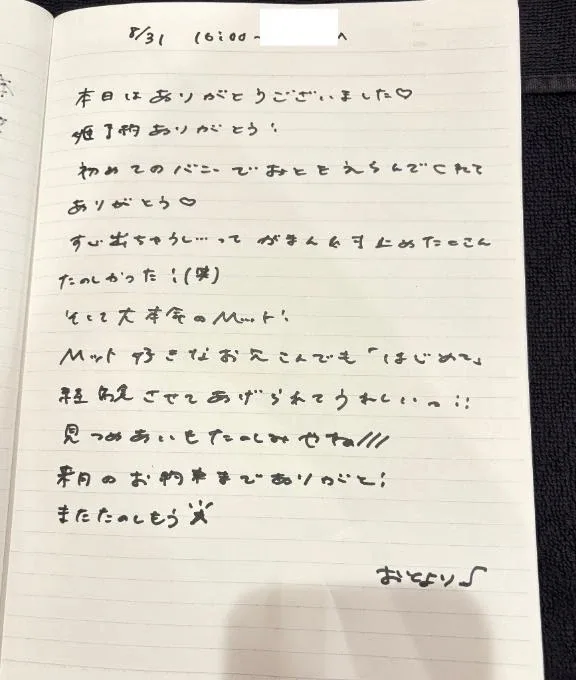 8/31 16:00~
本日はありがとうございました♡
姫予約ありがとう!
初めてのバニーでおとをえらんでくれて
ありがとう♡
すぐ出ちゃうし…って がまんして止めたとこん
たのしかった!(笑)
そして大本命のMット!
Mット好きなお兄さんでも「はじめて」
経験させてあげられてうれしいっ!!
見つめあいもたのしみやね///
来月のお約束までありがと!
またたのしもう
おとより♪